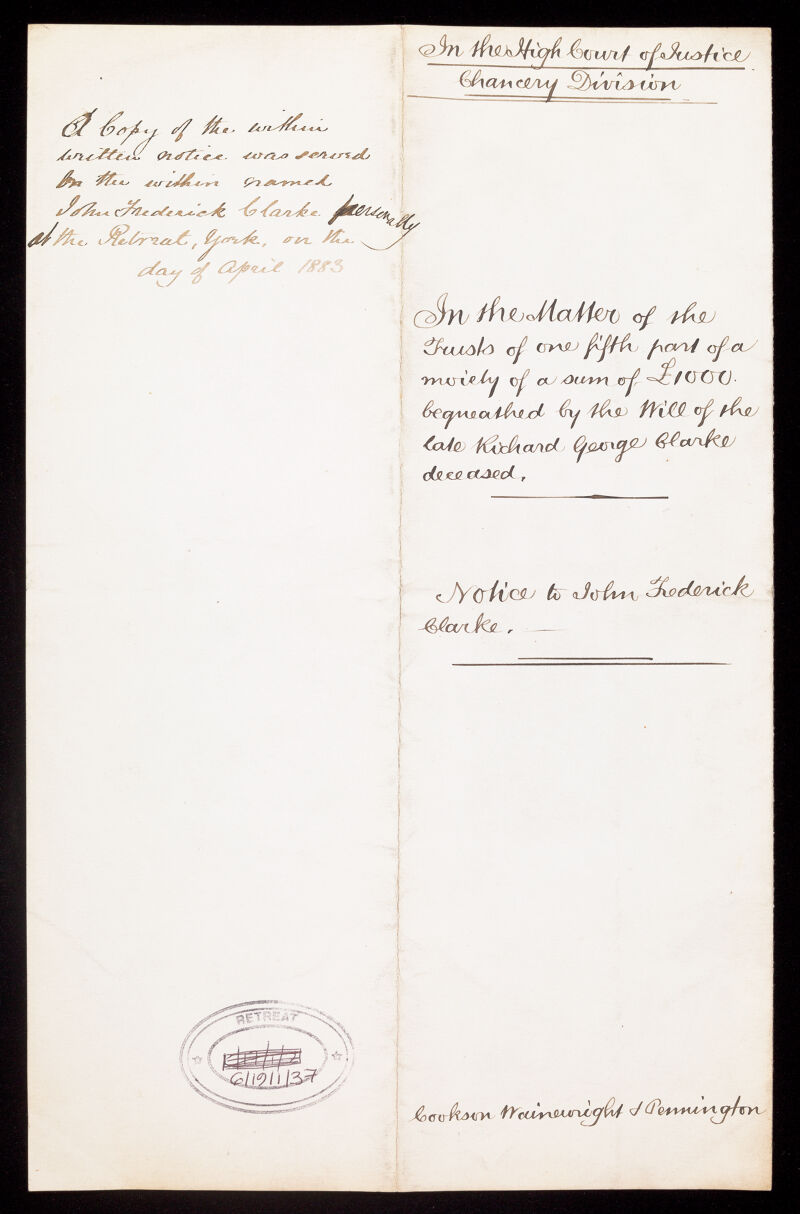 A Copy of the within
written notice was served
on the within named
John Frederick Clarke personally
at the Retreat, York, on the
day of April 1883
RETREAT
6/19/1/37
In the High Court of Justice
Chancery Division
In the Matter of the
Trusts of one fifth part of a
moiety of a sum of £1000.
bequeathed by the Will of the
late Richard George Clarke
deceased.
Notice to John Frederick
Clarke.
Cookson Wainewright & Pennington